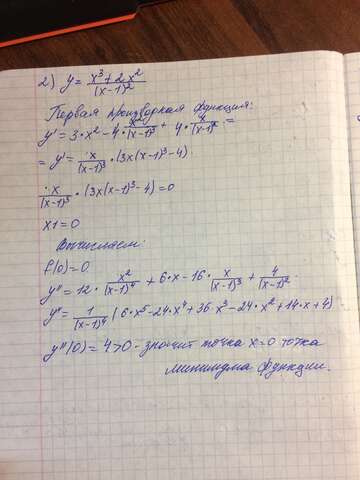 2) y = x³+2x² / (x-1)²
Первая производная функция:
y' = 3·x² - 4·x²/(x-1)³ + 4·x/(x-1)² =
= y' = x/(x-1)³ · (3x(x-1)³-4)
x/(x-1)³ · (3x(x-1)³-4)=0
x1=0
Вычисляем:
f(0)=0
y'' = 12·x²/(x-1)⁴ + 6·x - 16·x/(x-1)³ + 4/(x-1)².
y'' = 1/(x-1)⁴ (6·x⁵-24·x⁴+36·x³-24·x²+14·x+4)
y''(0) = 4>0 - значит точка x=0 точка
минимума функции.